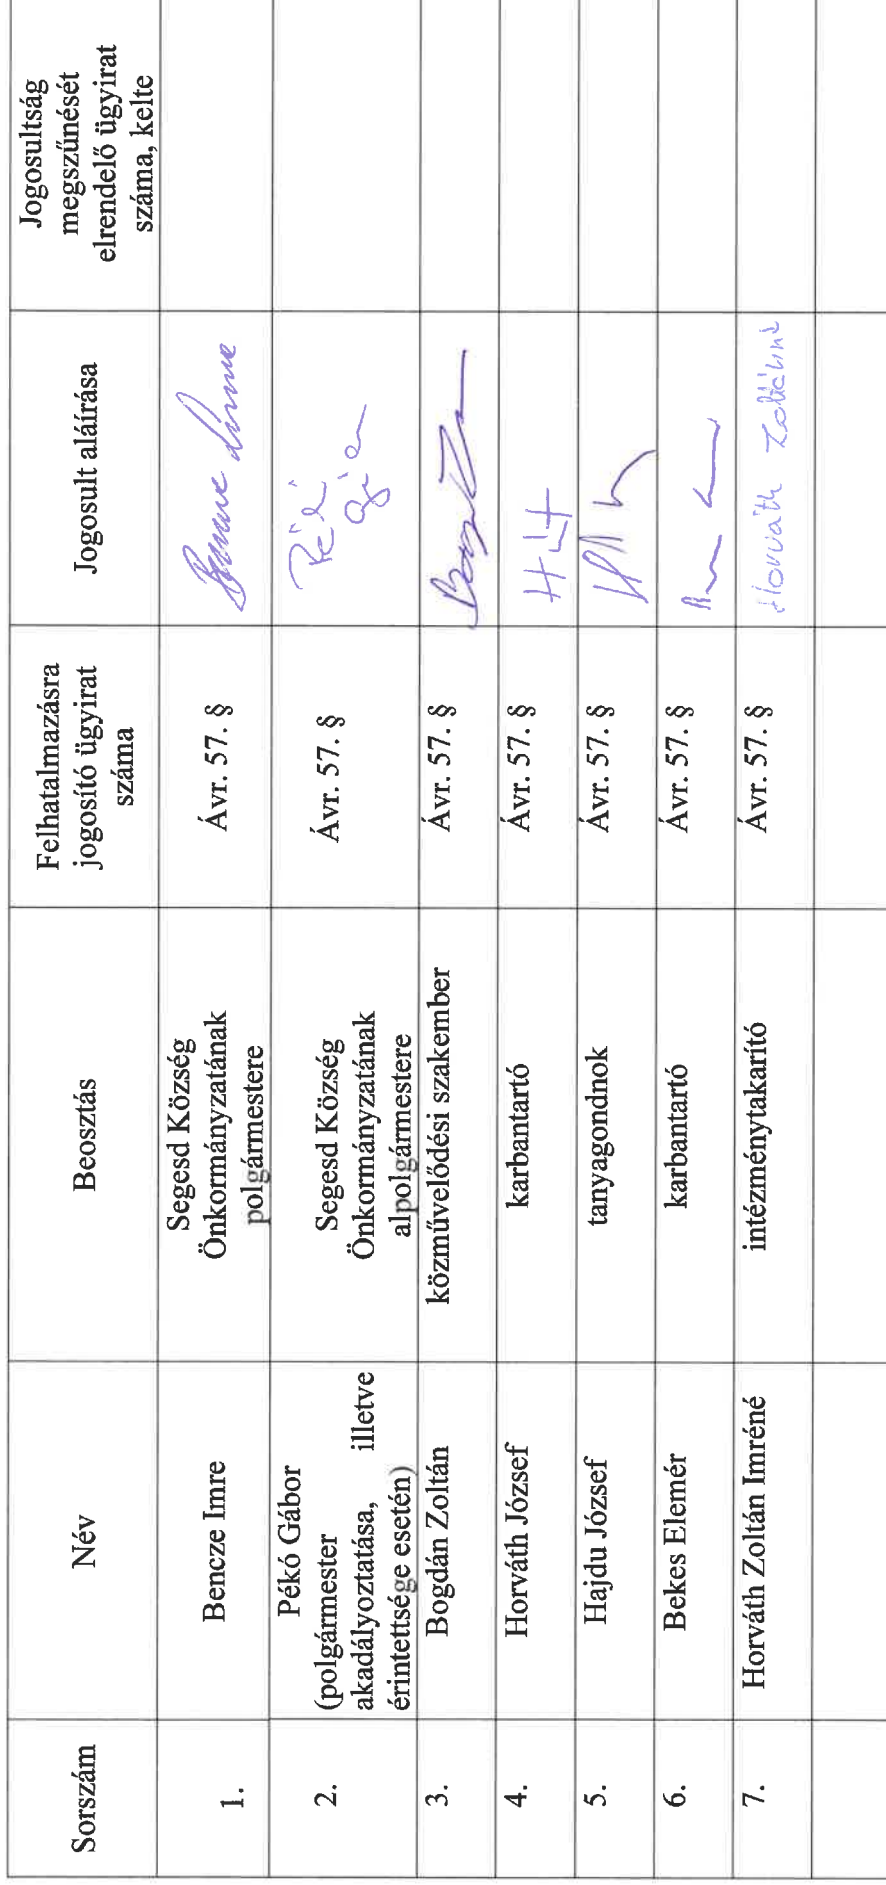 Sorszám
Név
Beosztás
Felhatalmazásra
jogosító ügyirat
száma
Jogosult aláírása
Jogosultság
megszűnését
elrendelő ügyirat
száma, kelte
1.
Bencze Imre
Segesd Község
Önkormányzatának
polgármestere
Ávr. 57. §
2.
Pékó Gábor
(polgármester
akadályoztatása, illetve
érintettsége esetén)
Segesd Község
Önkormányzatának
alpolgármestere
Ávr. 57. §
3.
Bogdán Zoltán
közművelődési szakember
Ávr. 57. §
4.
Horváth József
karbantartó
Ávr. 57. §
5.
Hajdu József
tanyagondnok
Ávr. 57. §
6.
Bekes Elemér
karbantartó
Ávr. 57. §
7.
Horváth Zoltán Imréné
intézménytakarító
Ávr. 57. §
Horváth